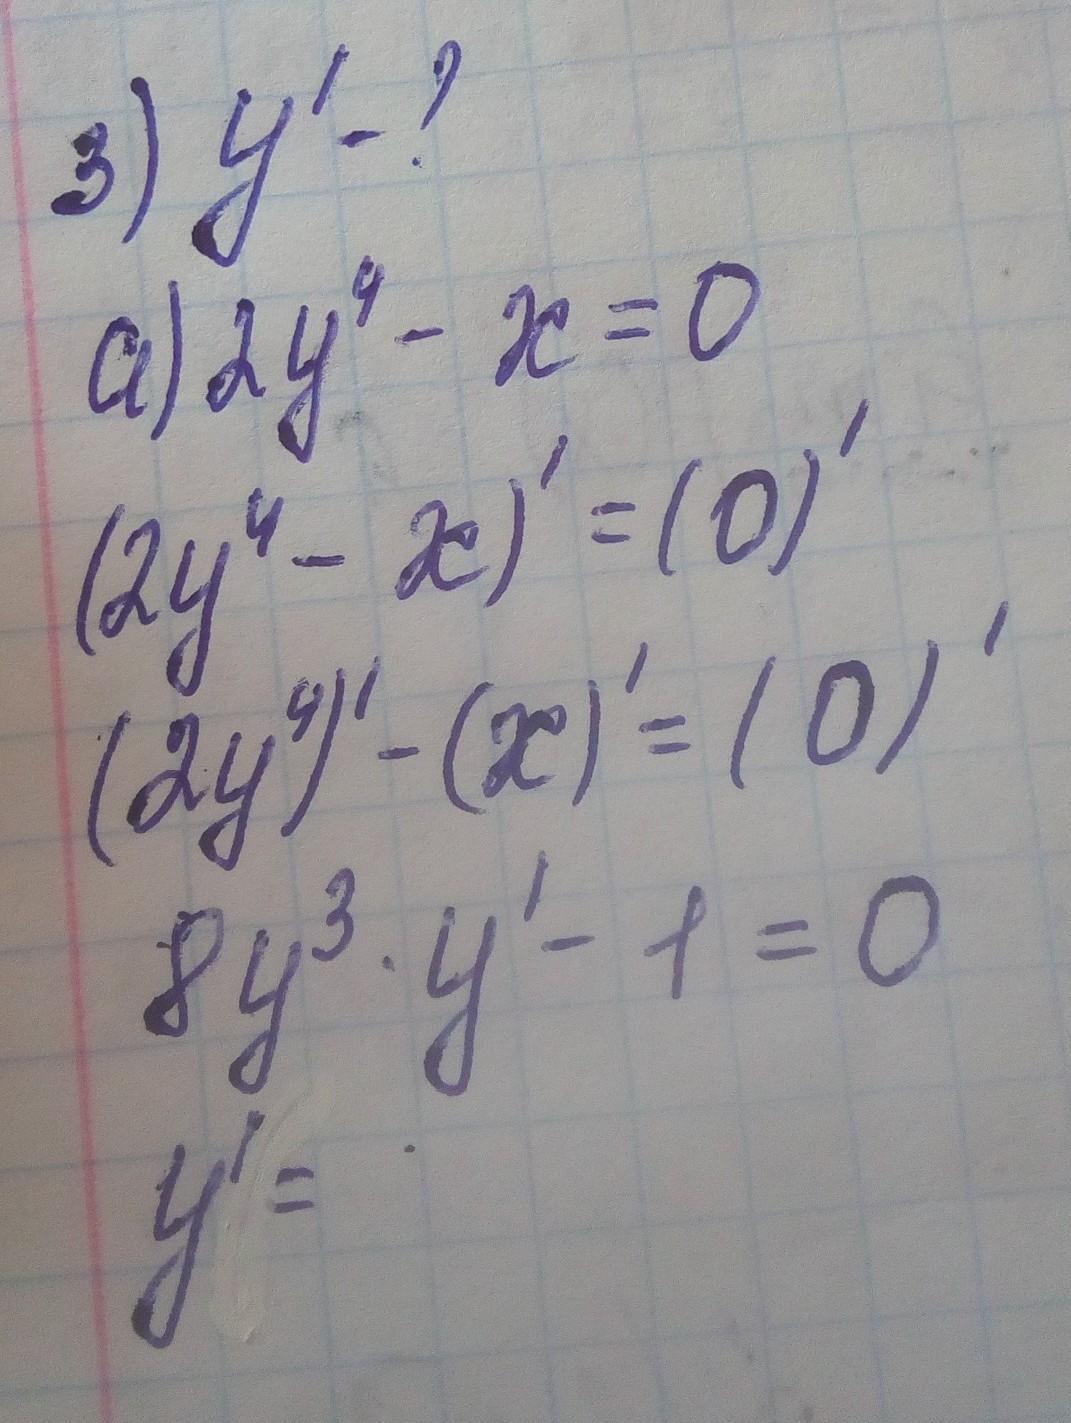 3) y' - ?
а) 2y⁴ - x = 0
(2y⁴ - x)' = (0)'
(2y⁴)' - (x)' = (0)'
8y³ · y' - 1 = 0
y' =